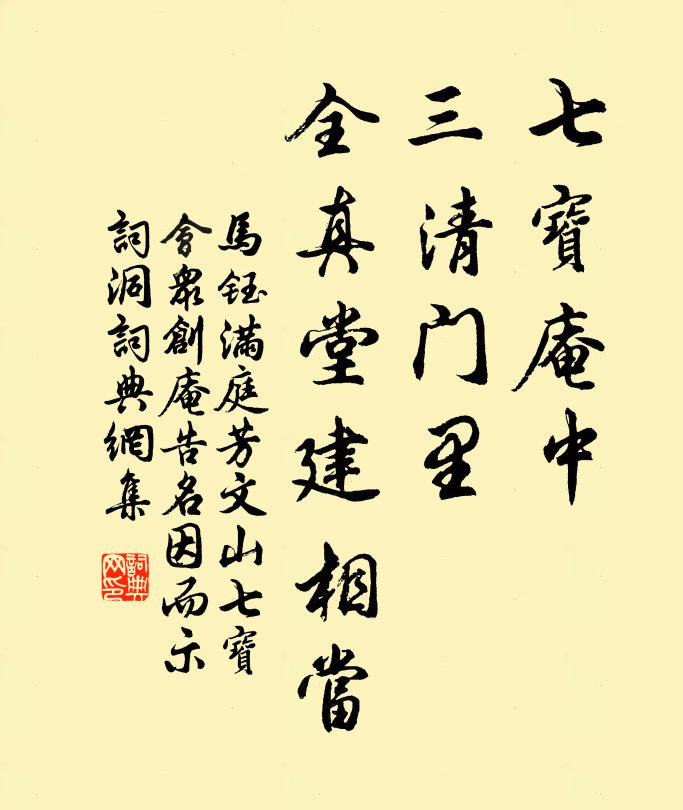 七寶庵中
三清门里
全真堂建相當
馬鈺滿庭芳文山七寶
會衆創庵告名因而示
詞洞詞典網集
詞典
网印